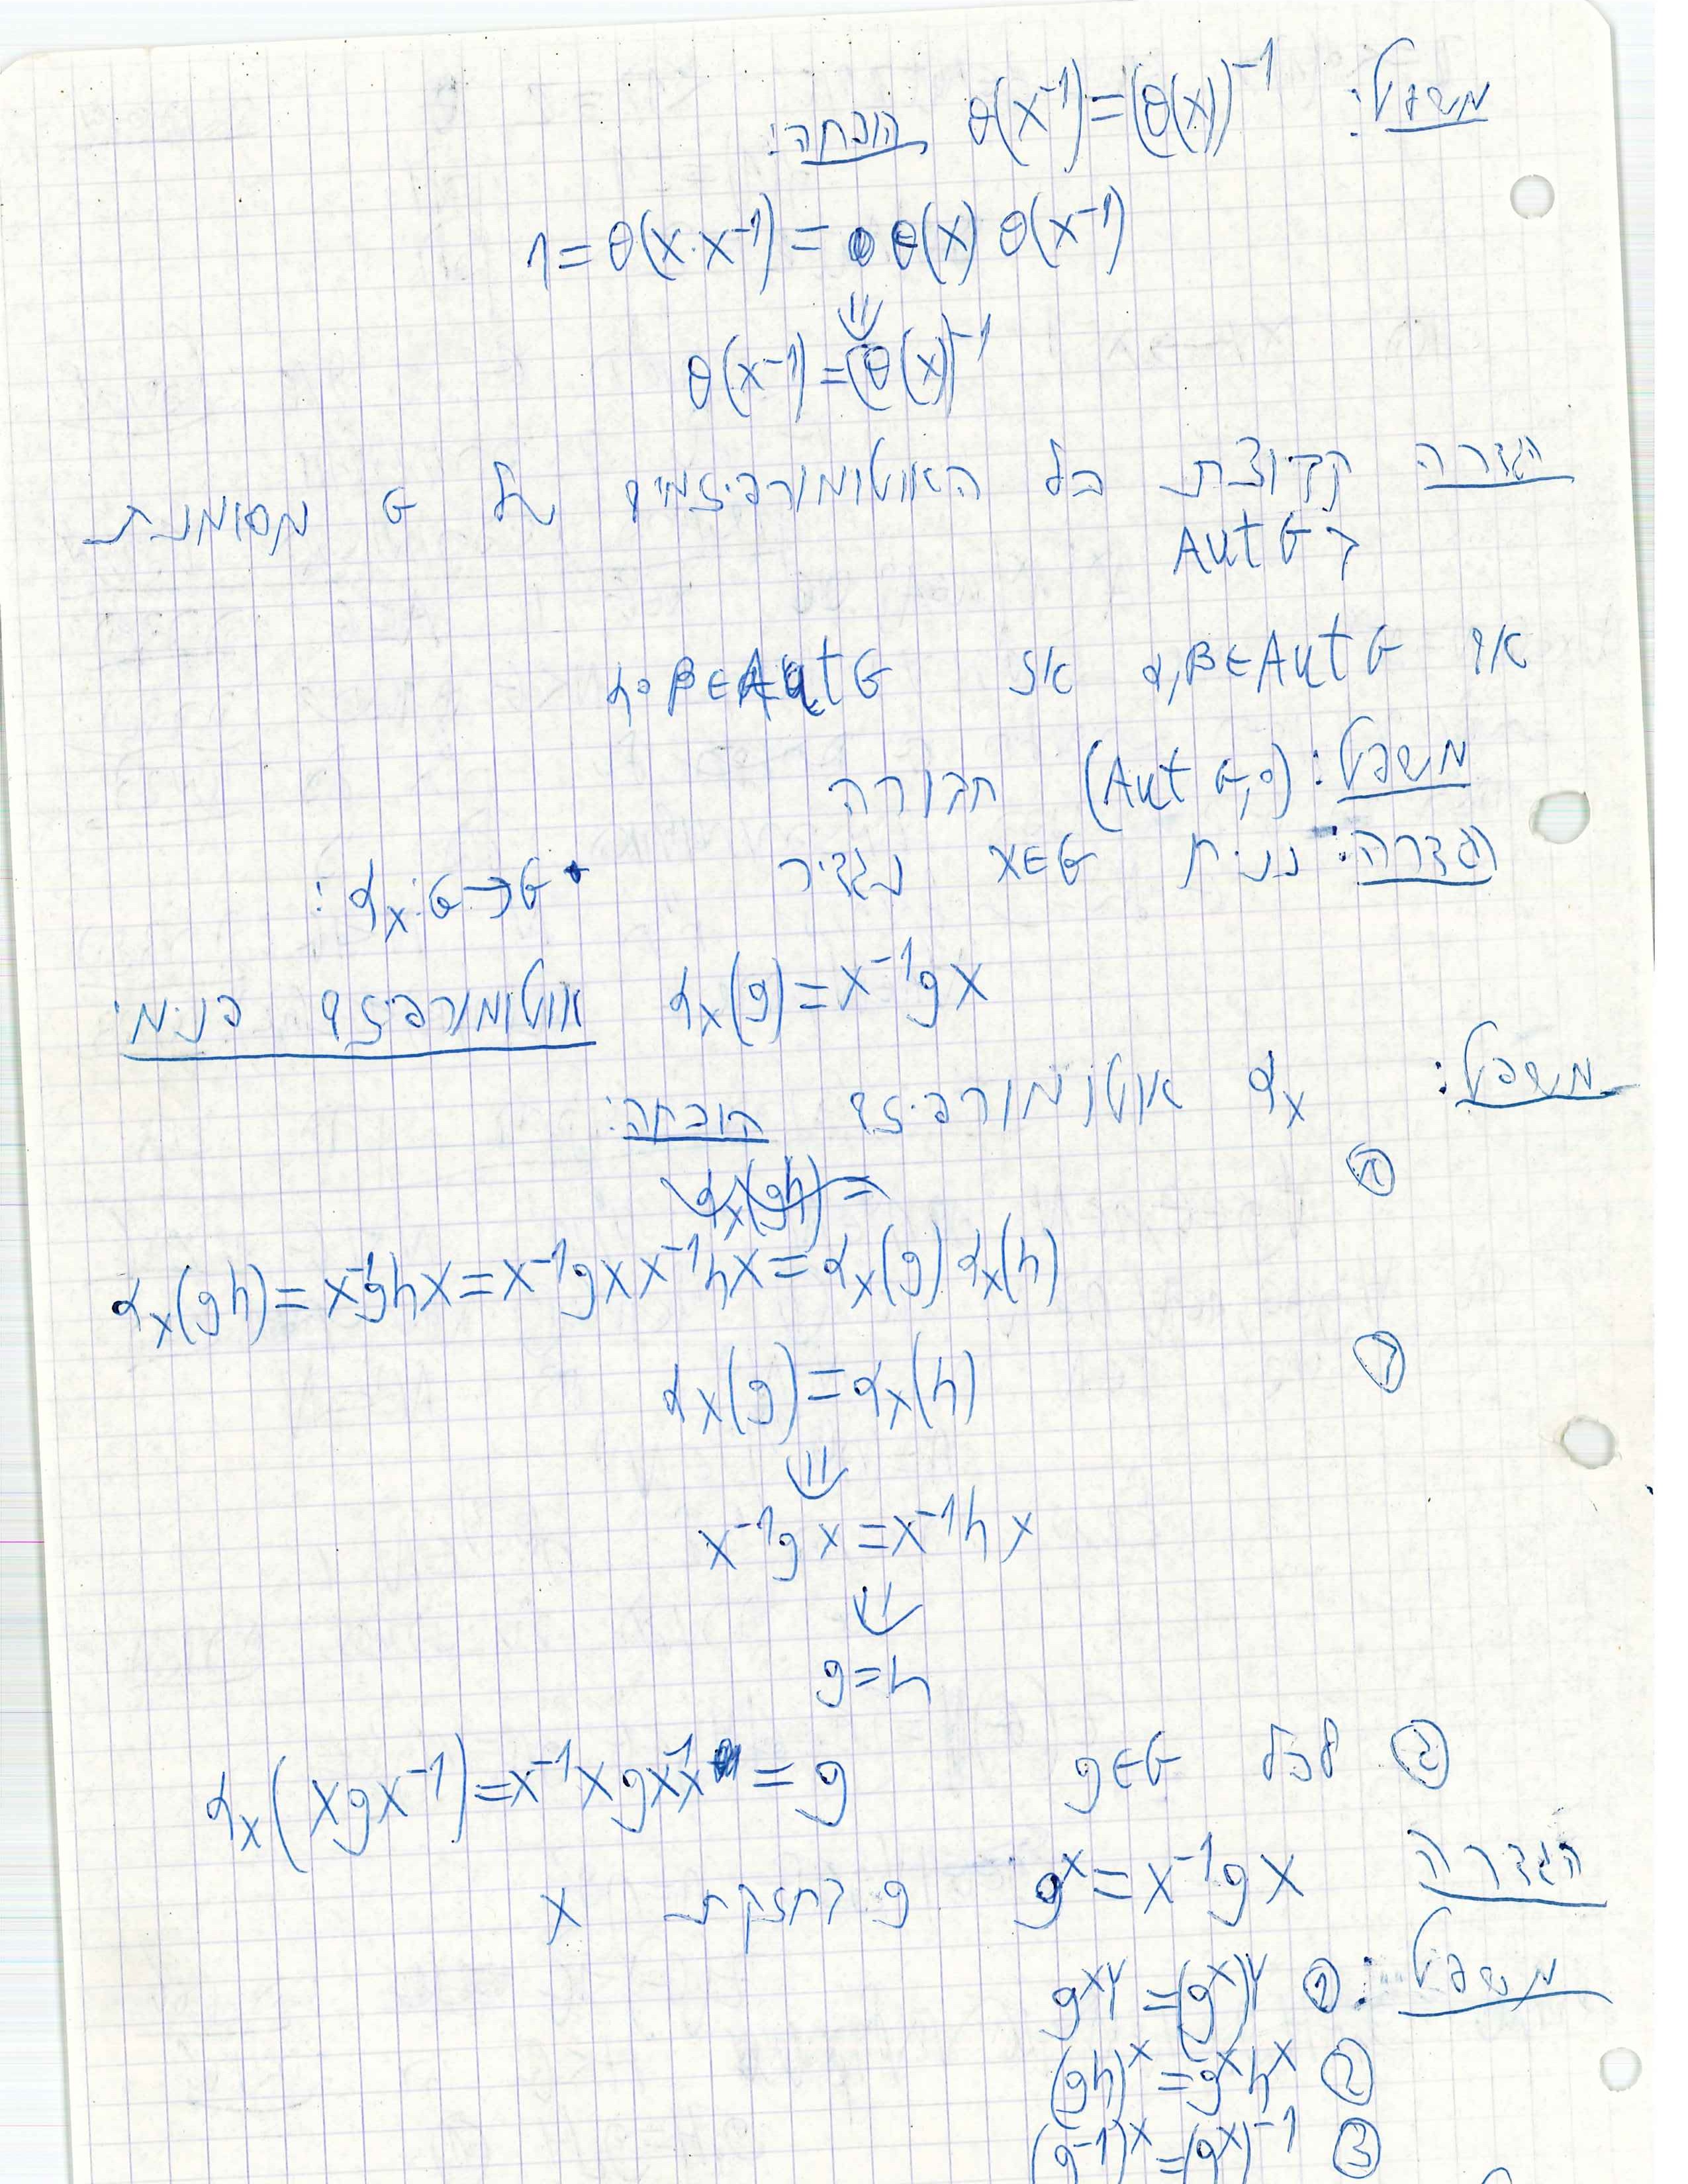 משפט: θ(x⁻¹)=(θ(x))⁻¹ הוכחה:
1=θ(x·x⁻¹)=θ(x)θ(x⁻¹)
⇓
θ(x⁻¹)=(θ(x))⁻¹
הגדרה קבוצת כל האוטומורפיזמים של G מסומנת
ב AutG
אם α,β∈AutG אז α∘β∈AutG
משפט: (AutG,∘) חבורה
הגדרה: נניח x∈G נגדיר αₓ:G→G:
αₓ(g)=x⁻¹gx אוטומורפיזם פנימי
משפט: αₓ אוטומורפיזם הוכחה:
א
αₓ(gh)=x⁻¹ghx=x⁻¹gxx⁻¹hx=αₓ(g)αₓ(h)
ב αₓ(g)=αₓ(h)
⇓
x⁻¹gx=x⁻¹hx
⇓
g=h
ג לכל g∈G αₓ(xgx⁻¹)=x⁻¹xgx⁻¹x=g
הגדרה gˣ=x⁻¹gx g בחזקת x
משפט: ① gˣʸ=(gˣ)ʸ
② (gh)ˣ=gˣhˣ
③ (g⁻¹)ˣ=(gˣ)⁻¹